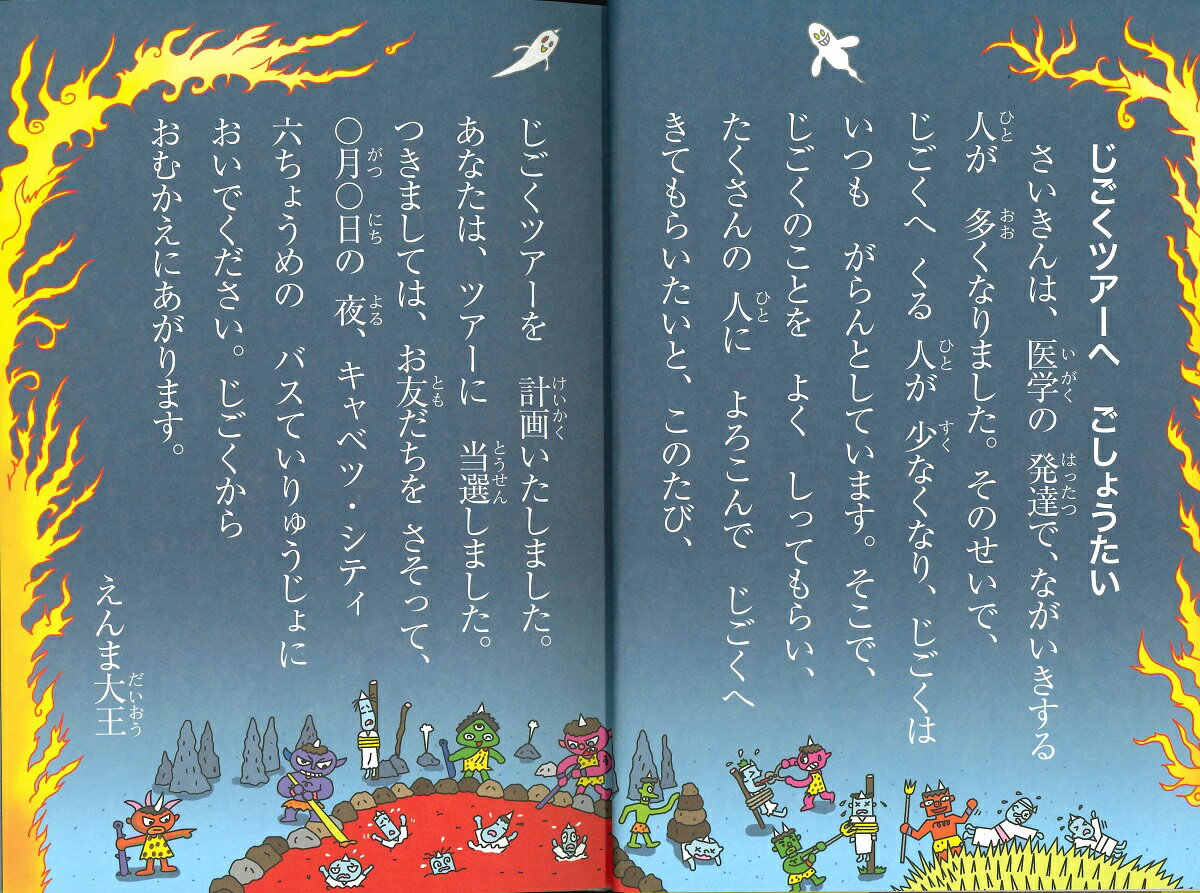 じごくツアーへ　ごしょうたい
さいきんは、医学の　発達で、ながいきする
人が　多くなりました。そのせいで、
じごくへ　くる　人が　少なくなり、じごくは
いつも　がらんとしています。そこで、
じごくのことを　よく　しってもらい、
たくさんの　人に　よろこんで　じごくへ
きてもらいたいと、このたび、
じごくツアーを　計画いたしました。
あなたは、ツアーに　当選しました。
つきましては、お友だちを　さそって、
〇月〇日の　夜、キャベツ・シティ
六ちょうめの　バスていりゅうじょに
おいでください。じごくから
おむかえにあがります。
えんま大王